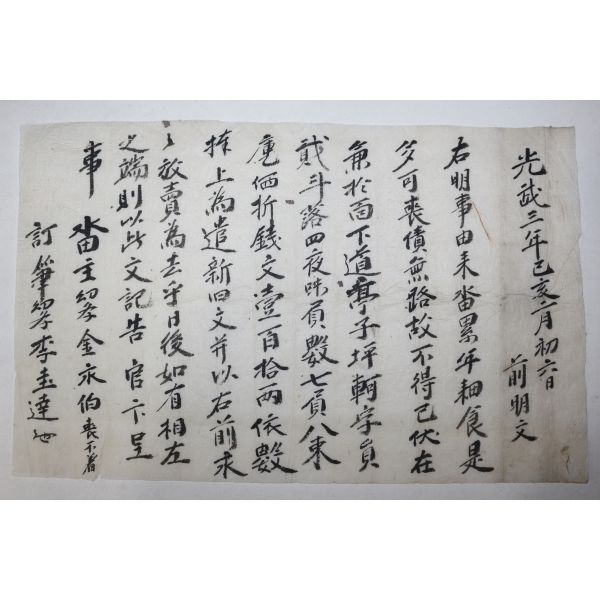 光武三年己亥二月初六日 前明文
右明事由來畓累年耕食是
多可喪債無路故不得已伏在
兼於面下道亭子坪軻字員
貳斗落四夜味負數七負八束
庫価折錢文壹百拾兩依數
捧上為遣新旧文并以右前永
永放賣為去乎日後如有相左
之端則以此文記告 官卞呈
事 畓主幼學金永伯喪不着
訂筆幼學李圭達